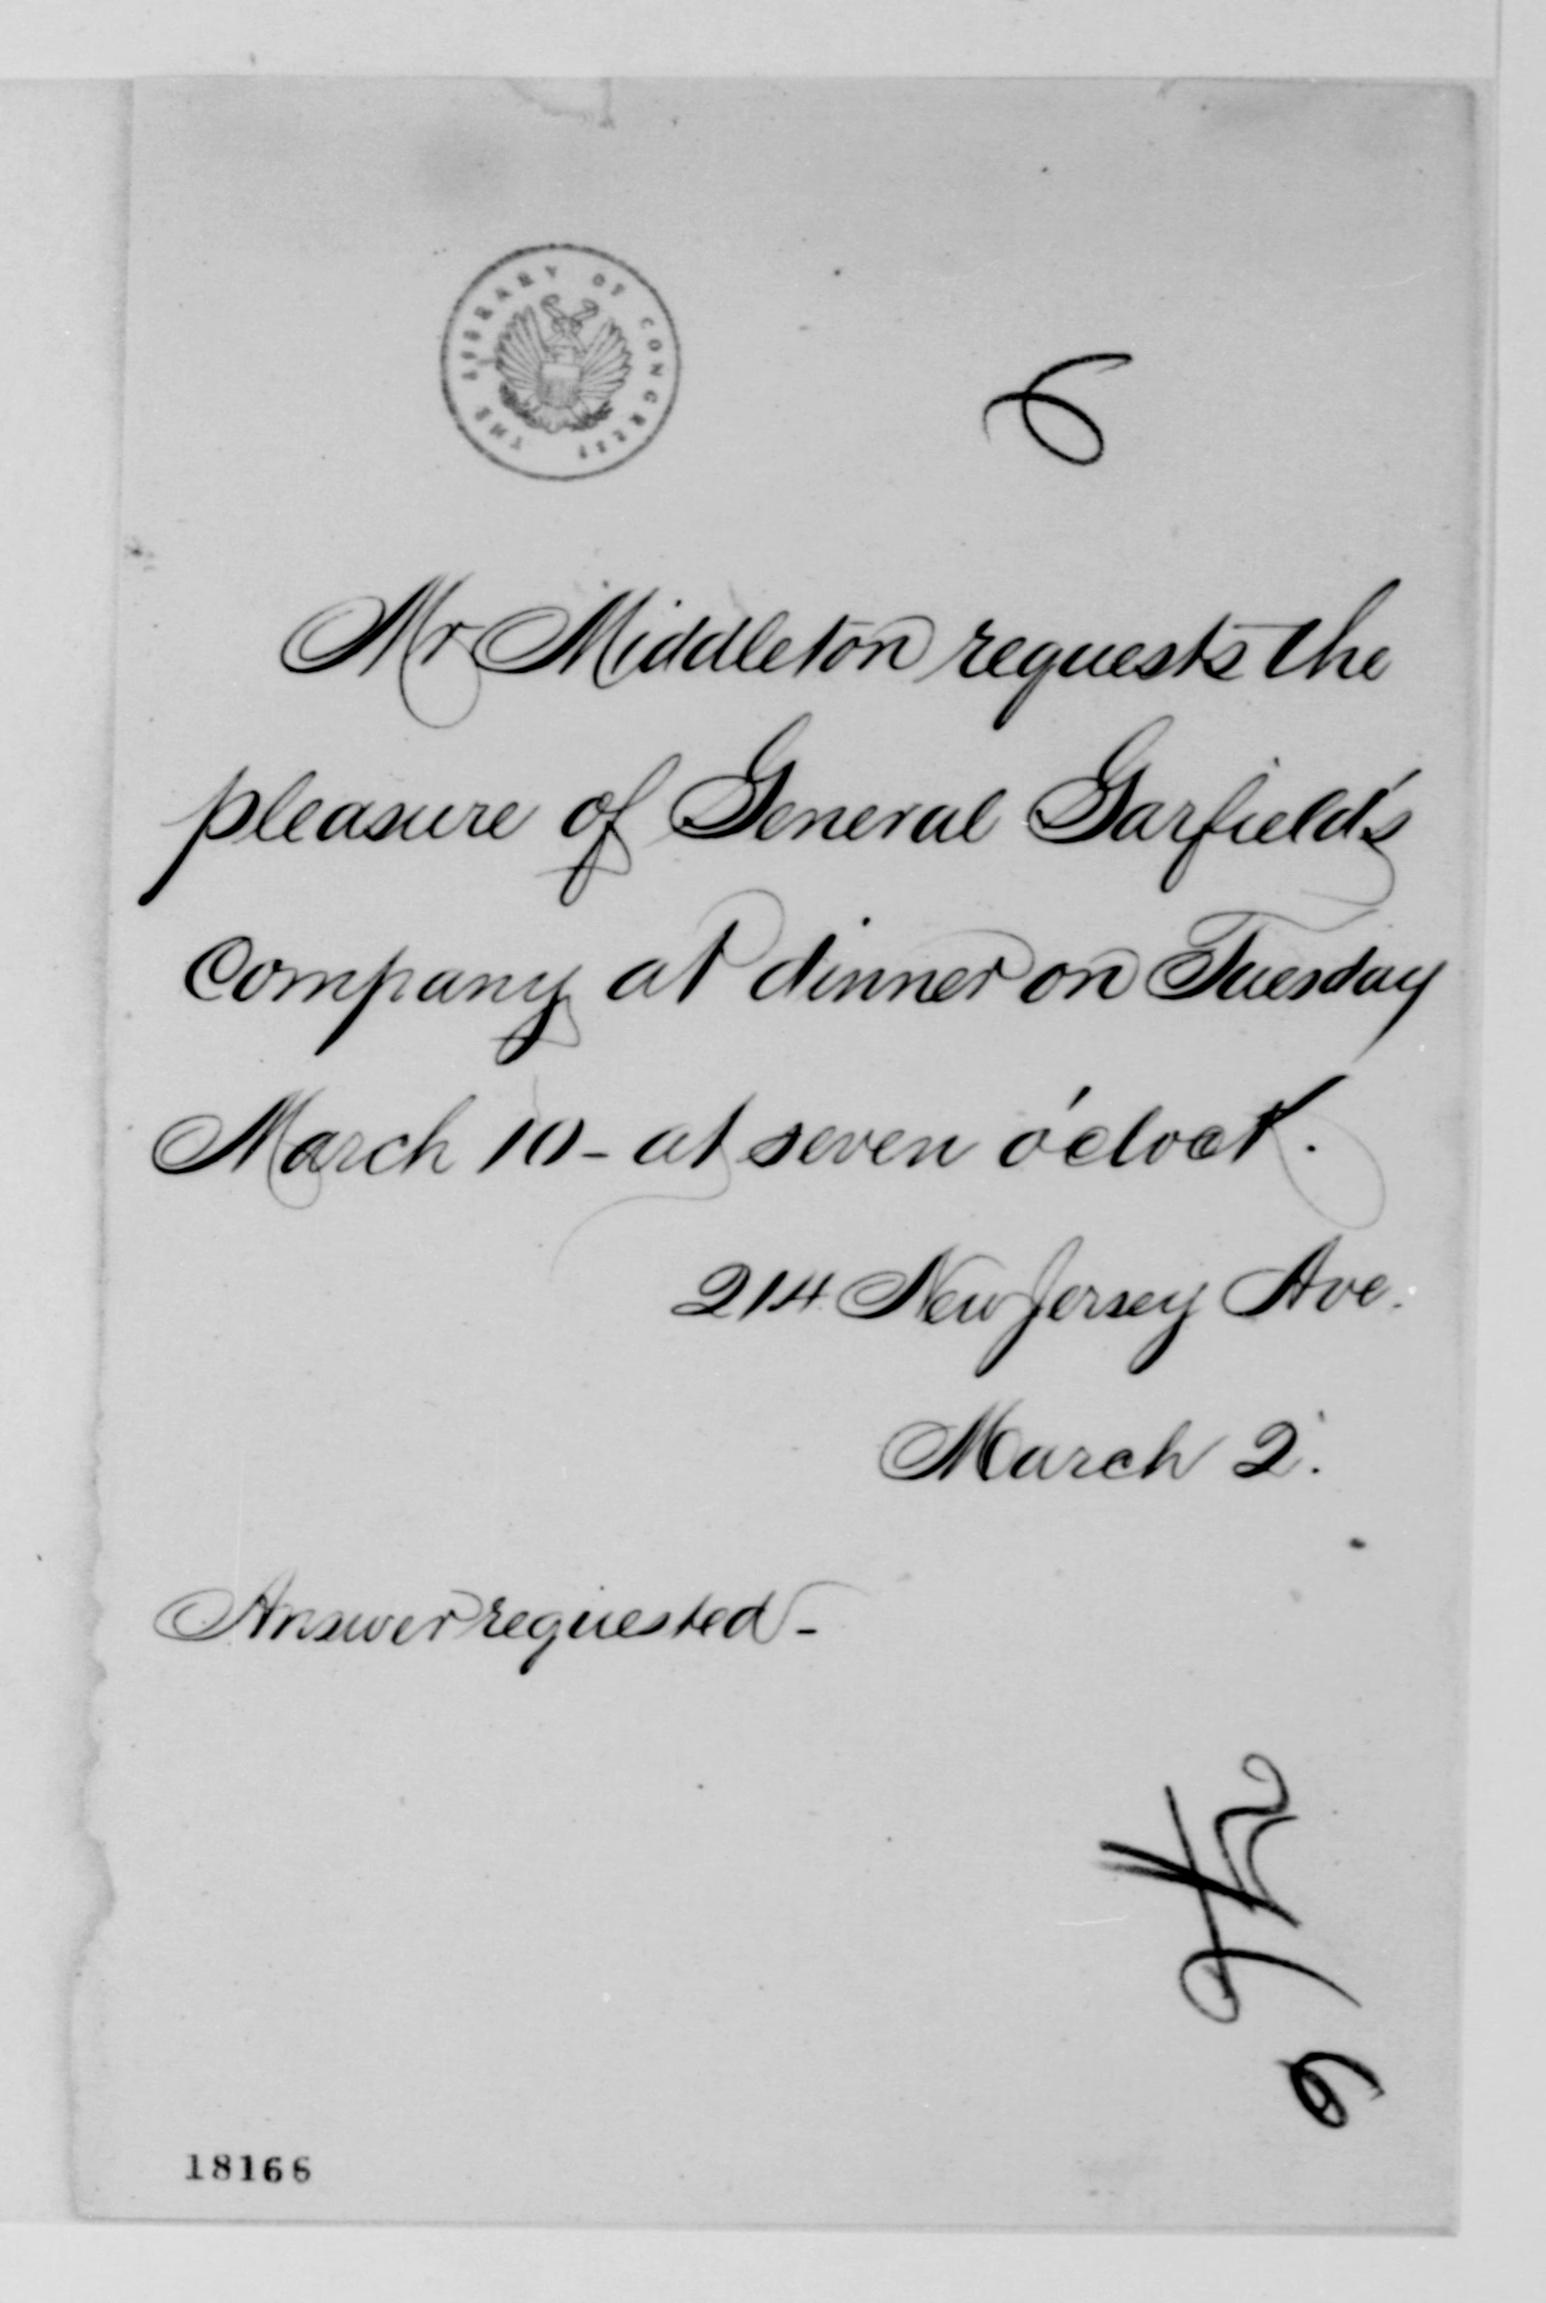 THE LIBRARY OF CONGRESS
6
Mr Middleton requests the
pleasure of General Garfield's
Company at dinner on Tuesday
March 10 - at seven o'clock.
214 New Jersey Ave.
March 2.
Answer requested -
6
18166